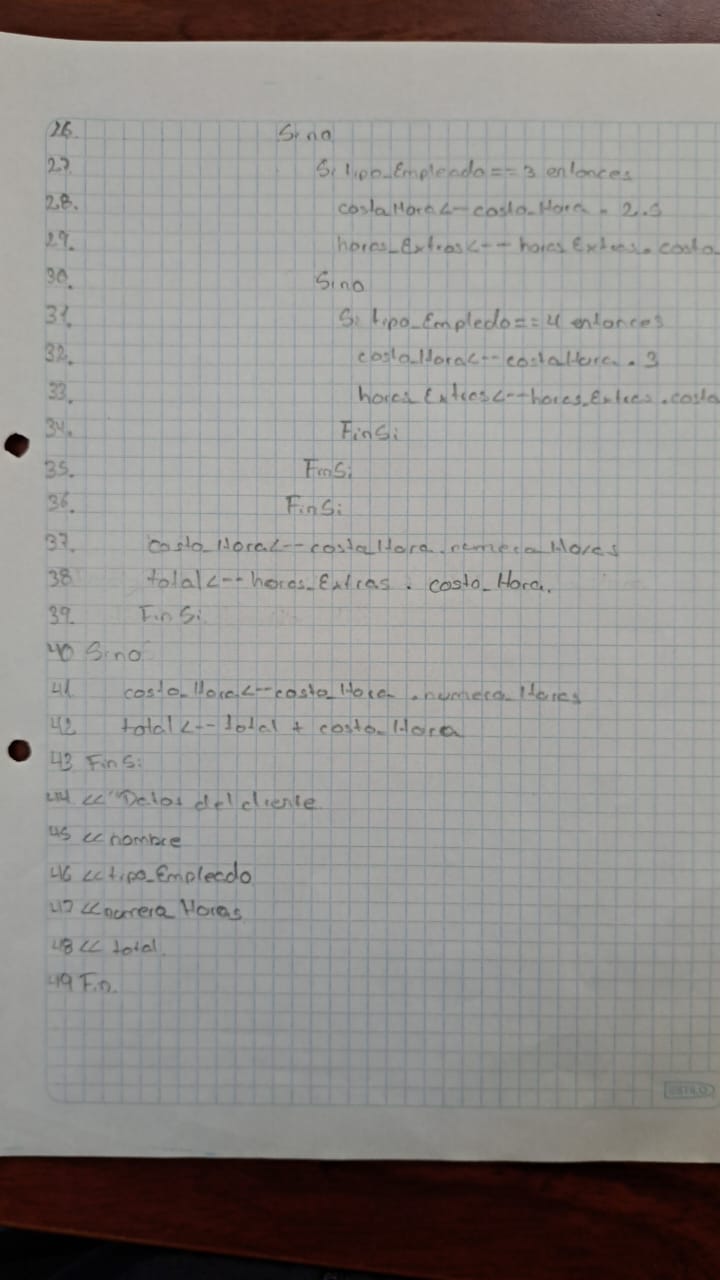 26. Sino
27. Si tipo_Empleado == 3 entonces
28. costo_Hora <-- costo_Hora * 2.5
29. horas_Extras <-- horas_Extras * costo
30. Sino
31. Si tipo_Empledo == 4 entonces
32. costo_Hora <-- costo_Hora * 3
33. horas_Extras <-- horas_Extras * costo
34. FinSi
35. FinSi
36. FinSi
37. costo_Hora <-- costo_Hora * numero_Horas
38 total <-- horas_Extras * costo_Hora.
39. FinSi
40 Sino
41 costo_Hora <-- costo_Hora * numero_Horas
42 total <-- total + costo_Hora
43 FinSi
44 << "Datos del cliente
45 << nombre
46 << tipo_Empleado
47 << numero_Horas
48 << total
49 Fin.
ESTILO